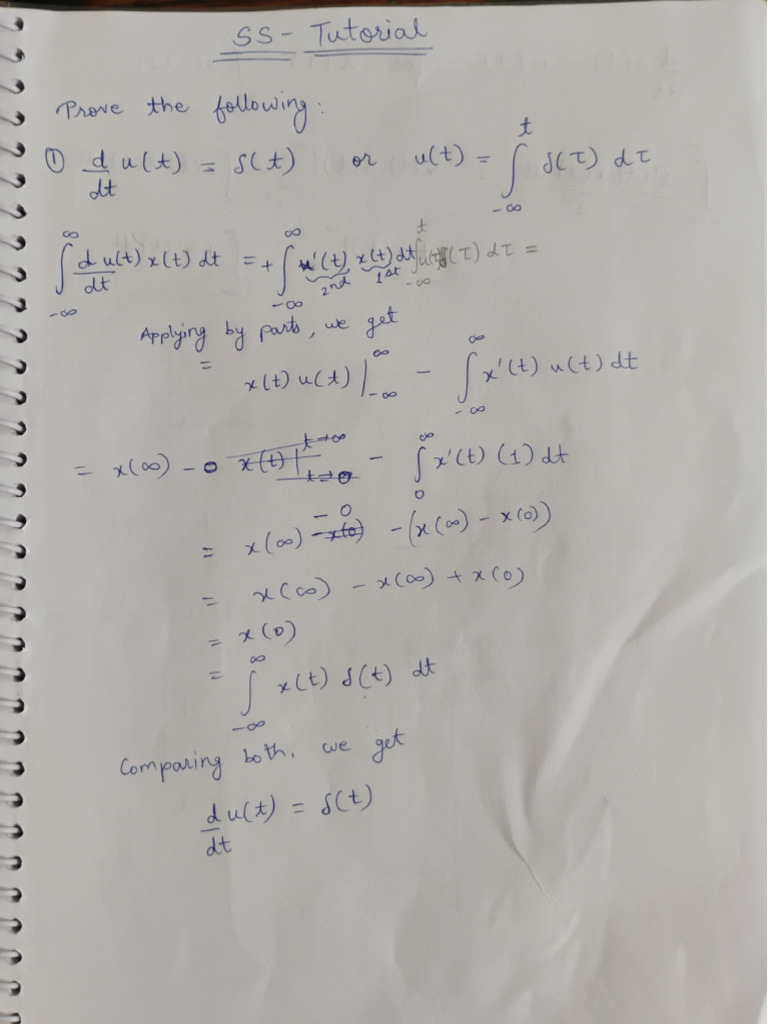 SS - Tutorial
Prove the following:
① d/dt u(t) = δ(t) or u(t) = ∫_{-∞}^{t} δ(τ) dτ
∫_{-∞}^{∞} d/dt u(t) x(t) dt = + ∫_{-∞}^{∞} u'(t) x(t) dt ∫_{-∞}^{t} (τ) dτ =
2nd 1st
Applying by parts, we get
= x(t) u(t) |_{-∞}^{∞} - ∫_{-∞}^{∞} x'(t) u(t) dt
= x(∞) - 0 x(t) |_{t→0}^{t→∞} - ∫_{0}^{∞} x'(t) (1) dt
= x(∞) - x(0) - 0 - (x(∞) - x(0))
= x(∞) - x(∞) + x(0)
= x(0)
= ∫_{-∞}^{∞} x(t) δ(t) dt
Comparing both, we get
d/dt u(t) = δ(t)